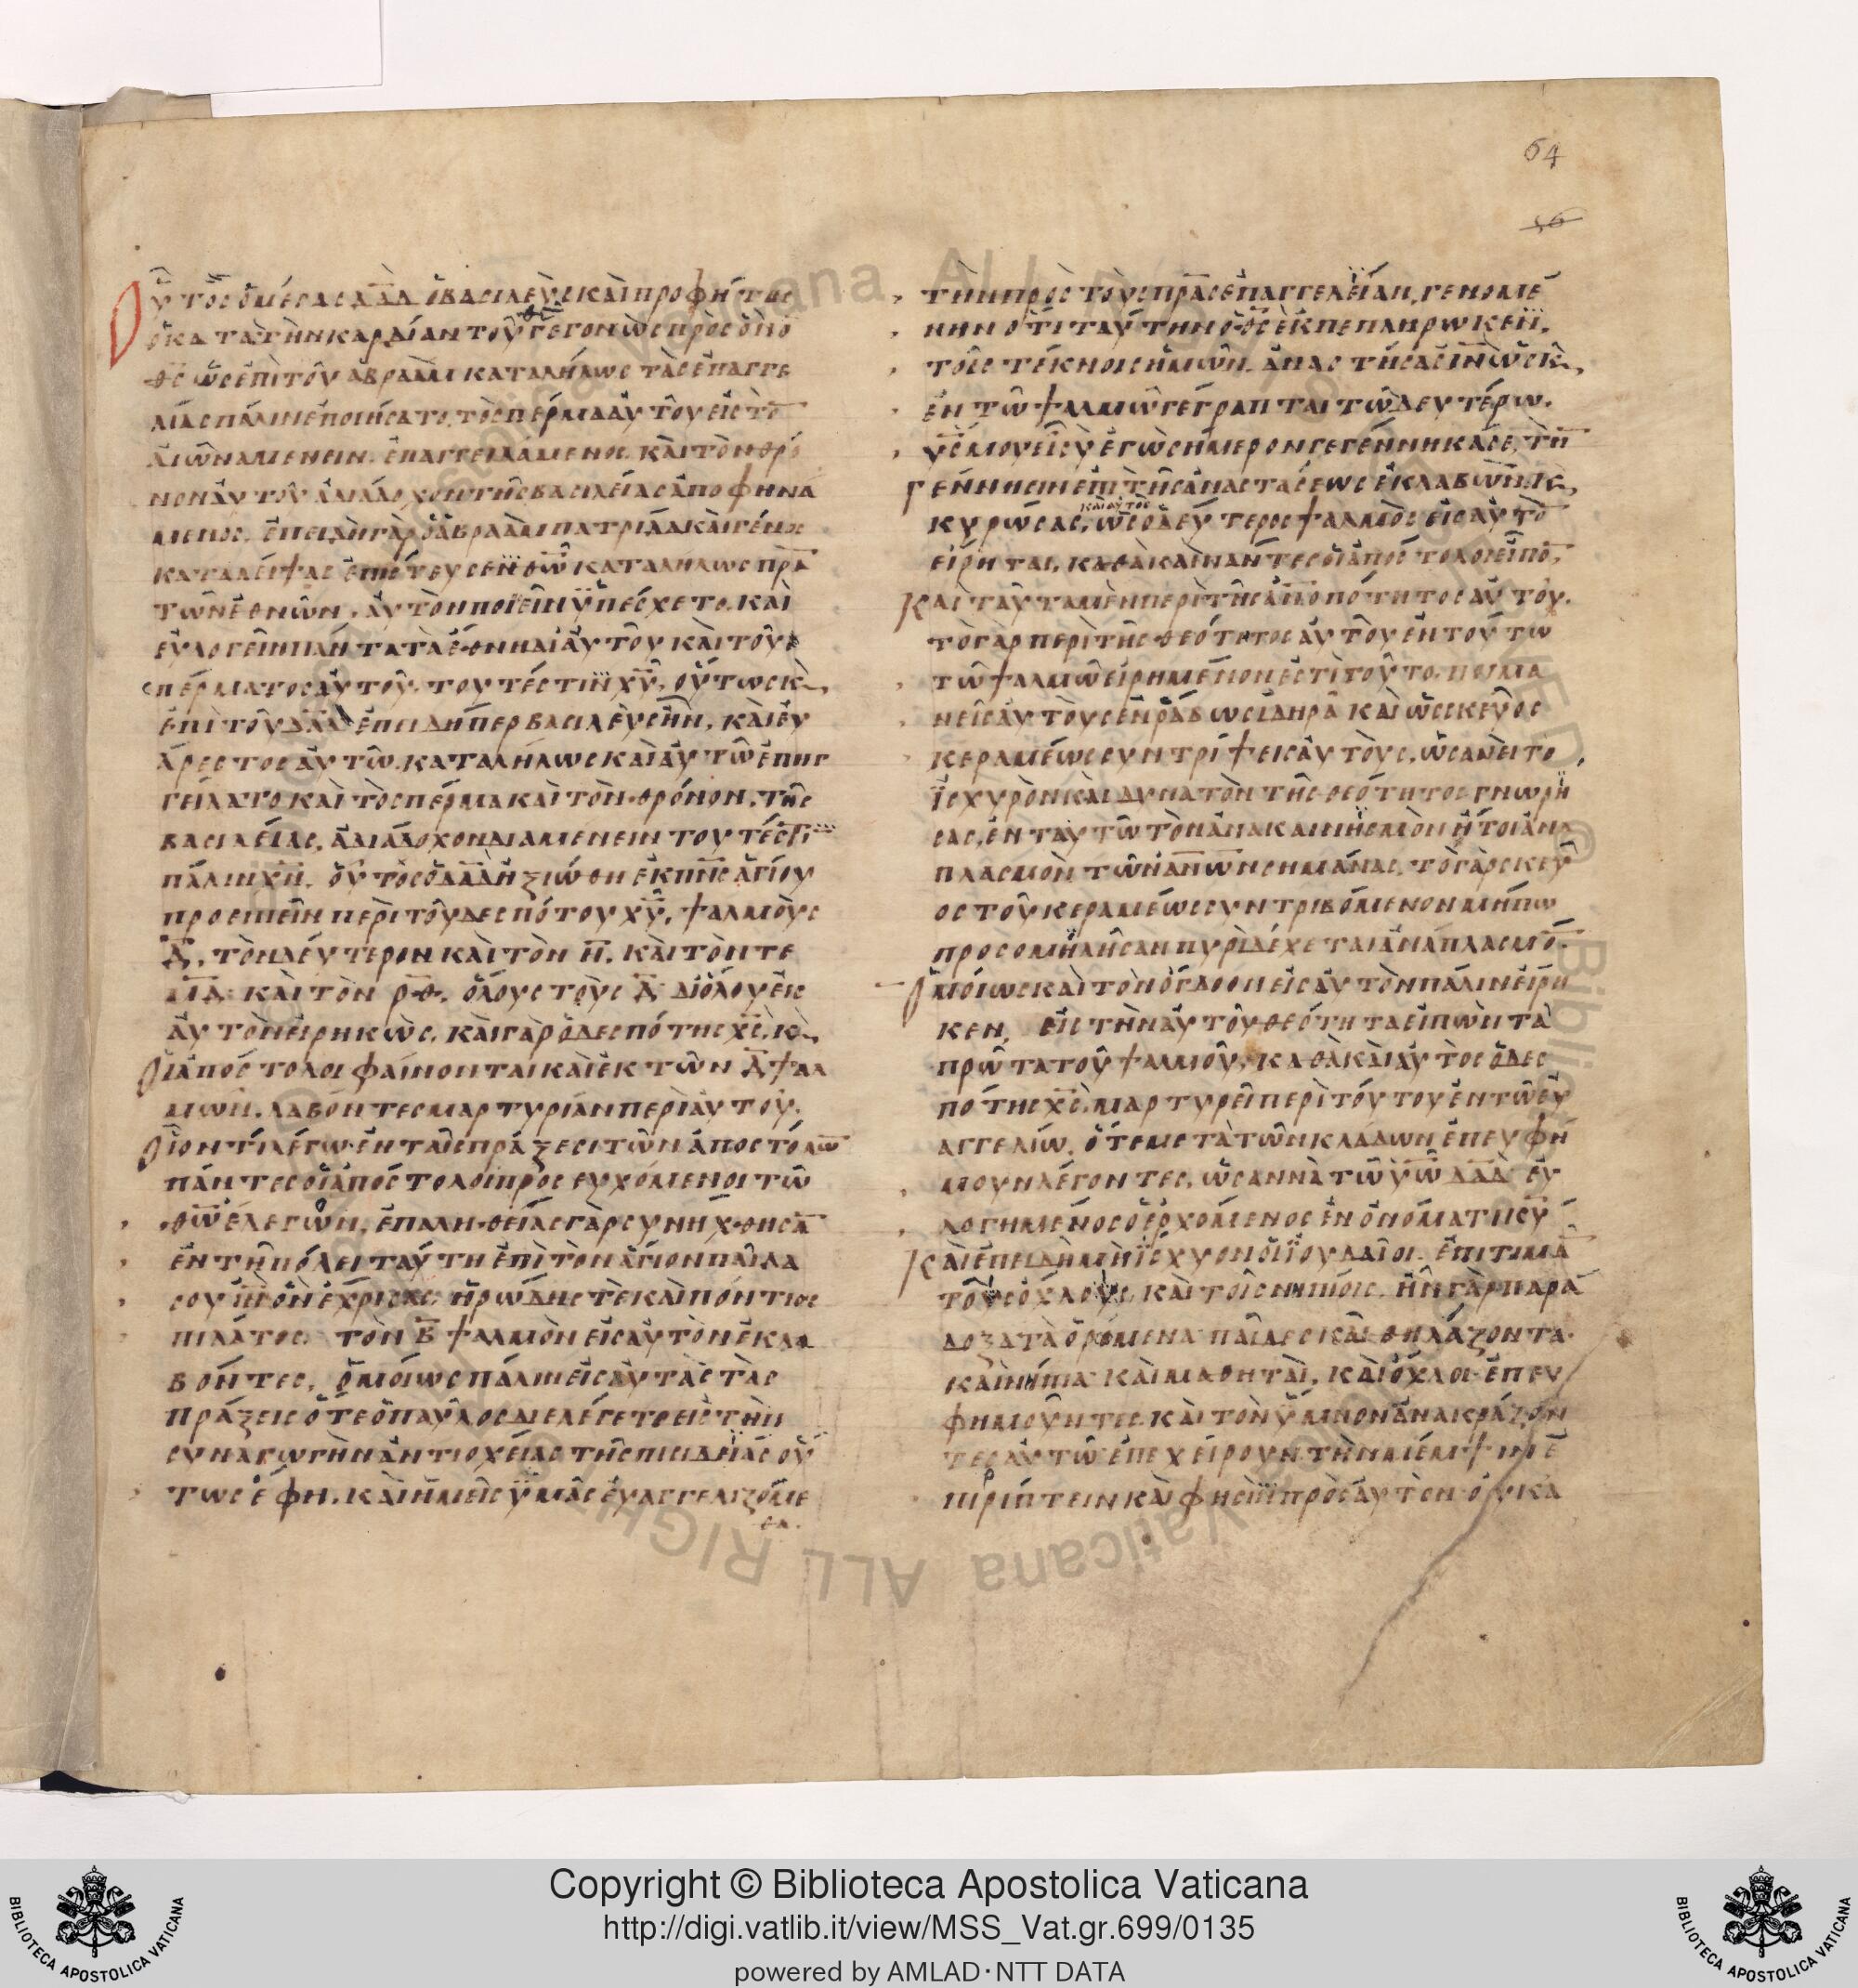 64
56
Οὗτος ὁ μέγας δᾱδ̄ ὁ βασιλεὺς καὶ προφήτης
ὁ κατὰ τὴν καρδίαν τοῦ θῡ γεγονὼς πρὸς ὃν ὁ
θ̄ς̄ ὡς ἐπὶ τοῦ ἀβραὰμ καταλήλως τὰς ἐπαγγε
λίας πάλιν ἐποιήσατο, τὸ σπέρμα αὐτοῦ εἰς τὸν
αἰῶνα μένειν ἐπαγγειλάμενος καὶ τὸν θρό
νον αὐτοῦ ἀδιάδοχον τῆς βασιλείας ἀποφηνά
μενος. ἐπειδὴ γὰρ ὁ ἀβραὰμ πατρίδα καὶ γένος
καταλείψας ἐπίστευσεν θ̄ω̄ καταλήλως πρ̄ᾱ
τῶν ἐθνῶν, αὐτὸν ποιεῖν ὑπέσχετο, καὶ
εὐλογεῖν πάντα τὰ ἔθνη δι' αὐτοῦ καὶ τοῦ
σπέρματος αὐτοῦ, τουτέστιν χ̄ῡ, οὕτως κ̀
ἐπὶ τοῦ δᾱδ̄ ἐπειδήπερ βασιλεὺς ἦν, καὶ εὐ
άρεστος αὐτῷ. καταλήλως καὶ αὐτῷ ἐπηγ
γείλατο καὶ τὸ σπέρμα καὶ τὸν θρόνον, τῆς
βασιλείας, ἀδιάδοχον διαμένειν τουτέστιν
πάλιν χ̄ν̄. οὗτος ὁ δᾱδ̄ ἠξιώθη ἐκ π̄ν̄ς̄ ἁγίου
προειπεῖν περὶ τοῦ δεσπότου χ̄ῡ, ψαλμοὺς
δ̄, τὸν δεύτερον καὶ τὸν η̄, καὶ τὸν τε
μ̄δ̄ καὶ τὸν ρ̄θ̄, ὅλους τοὺς δ̄ διόλου εἰς
αὐτὸν εἰρηκὼς, καὶ γὰρ ὁ δεσπότης χ̄ς̄, κ̀
οἱ ἀπόστολοι φαίνονται καὶ ἐκ τῶν δ̄ ψαλ
μῶν, λαβόντες μαρτυρίαν περὶ αὐτοῦ.
Οἷον τί λέγω ἐν ταῖς πράξεσι τῶν ἀποστόλω̄
πάντες οἱ ἀπόστολοι προσευχόμενοι τῷ
θ̄ω̄ ἔλεγον, ἐπ' ἀληθείας γὰρ συνήχθησᾱ
ἐν τῇ πόλει ταύτῃ ἐπὶ τὸν ἅγιον παῖδα
σου ῑν̄ ὃν ἔχρισας ἡρώδης τὲ καὶ πόντιος
πιλάτος. τὸν β̄ ψαλμὸν εἰς αὐτὸν ἐκλα
βόντες, ὁμοίως πάλιν εἰς αὐτὰς τὰς
πράξεις ὅτε ὁ παῦλος διελέγετο εἰς τὴν
συναγωγὴν ἀντιοχείας τῆς πισιδείας οὕ
τως ἔφη. καὶ ἡμεῖς ὑμᾶς εὐαγγελιζόμε
θα.
τὴν πρὸς τοὺς πρ̄ας̄ ἐπαγγελείαν, γενομέ
νην ὅτι ταύτην ὁ θ̄ς̄ ἐκπεπλήρωκεν,
τοῖς τέκνοις ἡμῶν. ἀναστήσας ῑν̄ ὡς κ̀
ἐν τῷ ψαλμῷ γέγραπται τῷ δευτέρῳ.
ῡς̄ μου εἶ σὺ ἐγὼ σήμερον γεγέννηκά σε, τὴν
γέννησιν ἐπὶ τῆς ἀναστάσεως ἐκλαβὼν κ̀
κυρώσας, ὡς ὁ δεύτερος ψαλμὸς εἰς αὐτὸ̄
καὶ οὗτος
εἴρηται, καθὰ καὶ πάντες οἱ ἀπόστολοι εἶπο̄,
Καὶ ταῦτα μὲν περὶ τῆς ἀν̄ο̄πότητος αὐτοῦ.
τὸ γὰρ περὶ τῆς θεότητος αὐτοῦ ἐν τούτω
τῷ ψαλμῷ εἰρημένον ἐστὶ τοῦτο, ποιμα
νεῖς αὐτοὺς ἐν ῥάβδω σιδηρᾷ καὶ ὡς σκεῦος
κεραμέως συντρίψεις αὐτοὺς, ὡσανεὶ τὸ
ἰσχυρὸν καὶ δυνατὸν τῆς θεότητος γνωρή
σας, ἐν ταυτῷ τὸν ἀνακαινησμὸν ἤτοι ἀνα
πλασμὸν τῶν ᾱν̄ω̄ν̄ σημάνας, τὸ γὰρ σκεῦ
ος τοῦ κεραμέως συντριβόμενον μήπω
προσομηλῆσαν πυρὶ δέχεται ἀνάπλασμο̄.
Ὁμοίως καὶ τὸν ὄγδοον εἰς αὐτὸν πάλιν εἴρη
κεν, εἰς τὴν αὐτοῦ θεότητα εἰπὼν τὰ
πρῶτα τοῦ ψαλμοῦ, καθὰ καὶ αὐτὸς ὁ δεσ
πότης χ̄ς̄, μαρτυρεῖ περὶ τούτου ἐν τῷ εὐ
αγγελίω, ὅτε μετὰ τῶν κλάδων ἐπευφή
μουν λέγοντες, ὡσαννὰ τῷ ῡω̄ δᾱδ̄ εὐ
λογημένος ὁ ἐρχόμενος ἐν ὀνόματι κ̄ῡ
Καὶ ἐπειδὴ μὴ ἴσχυον οἱ ἰουδαῖοι ἐπιτιμᾶ
τοὺς ὄχλους, καὶ τοῖς νηπίοις. ἦν γὰρ παρά
δοξα τὰ ὁρώμενα παῖδες καὶ θηλάζοντα
καὶ νήπια καὶ μαθηταὶ, καὶ ὄχλοι ἐπευ
φημοῦντες καὶ τὸν ὕμνον ἀνακράζον
τες αὐτῷ ἐπεχείρουν τὴν μέμψιν ἐ
πιρίπτειν καὶ φησὶν πρὸς αὐτὸν οὐκ ἀ
Copyright © Biblioteca Apostolica Vaticana
http://digi.vatlib.it/view/MSS_Vat.gr.699/0135
powered by AMLAD·NTT DATA
BIBLIOTECA APOSTOLICA VATICANA
BIBLIOTECA APOSTOLICA VATICANA